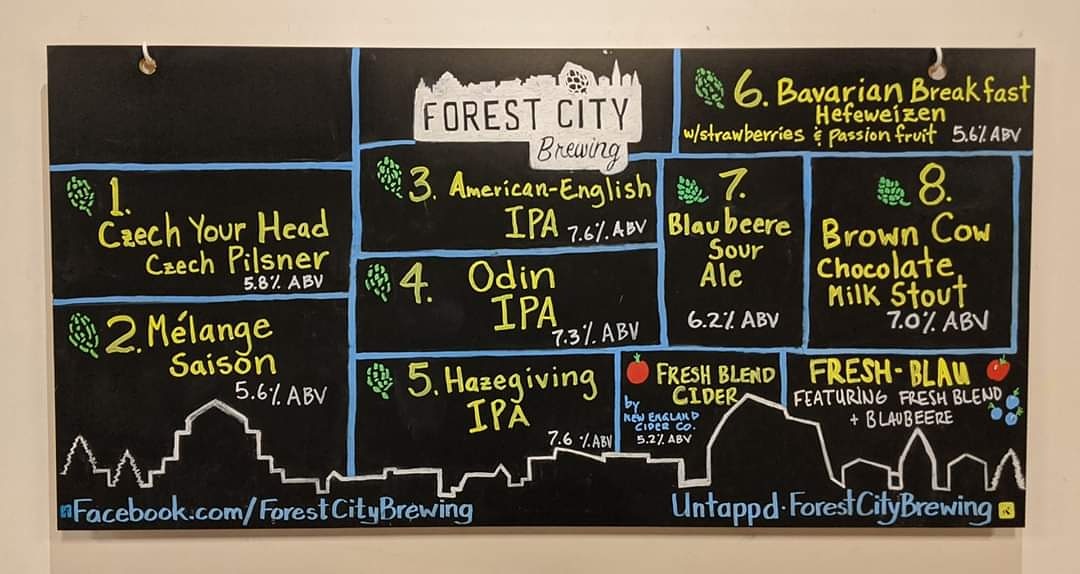 FOREST CITY
Brewing
1.
Czech Your Head
Czech Pilsner
5.8% ABV
2. Mélange
Saison
5.6% ABV
3. American-English
IPA 7.6% ABV
4. Odin
IPA
7.3% ABV
5. Hazegiving
IPA
7.6 % ABV
6. Bavarian Breakfast
Hefeweizen
w/strawberries & passion fruit 5.6% ABV
7.
Blaubeere
Sour
Ale
6.2% ABV
8.
Brown Cow
Chocolate
Milk Stout
7.0% ABV
FRESH BLEND
CIDER
by
NEW ENGLAND
CIDER CO.
5.2% ABV
FRESH-BLAU
FEATURING FRESH BLEND
+ BLAUBEERE
Facebook.com/ForestCityBrewing
Untappd·ForestCityBrewing